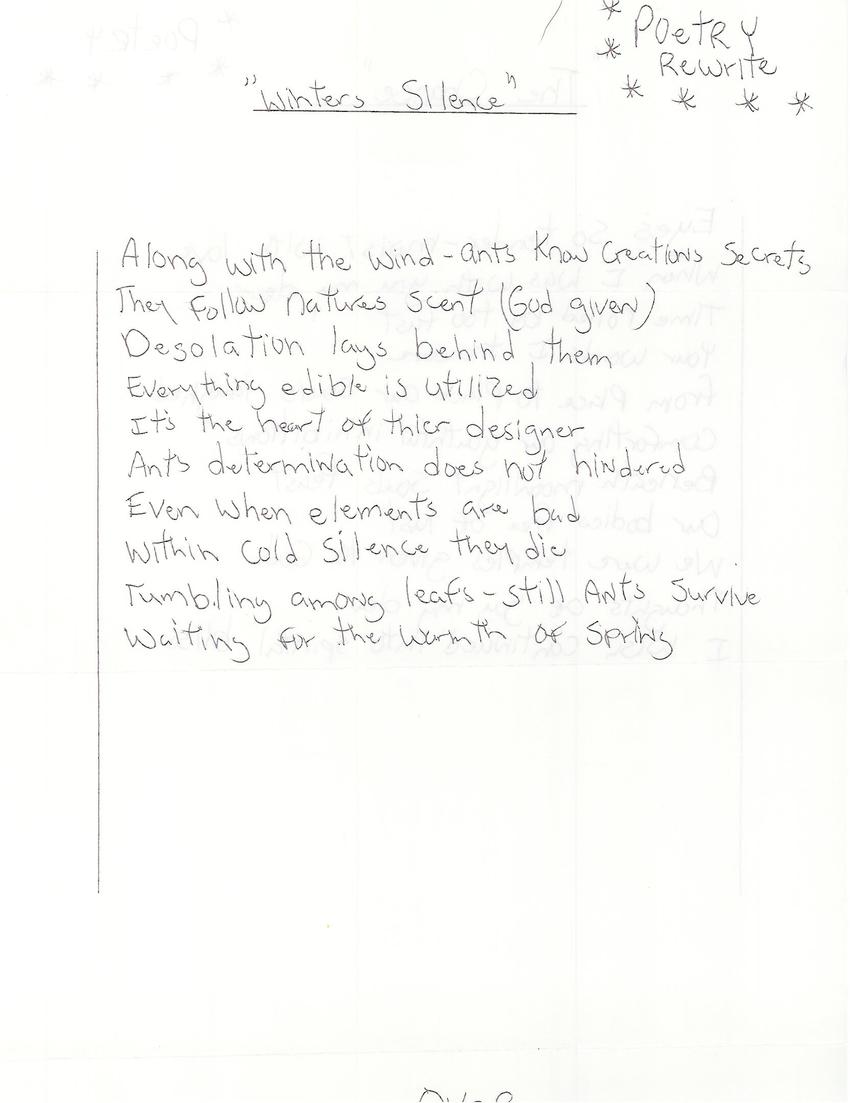 * Poetry
* Rewrite
* * * *
"Winters Silence"
Along with the wind - ants Know Creations Secrets
They follow natures scent (God given)
Desolation lays behind them
Everything edible is utilized
It's the heart of thier designer
Ants determination does not hindered
Even when elements are bad
Within cold silence they die
Tumbling among leafs - still Ants Survive
Waiting for the warmth of Spring